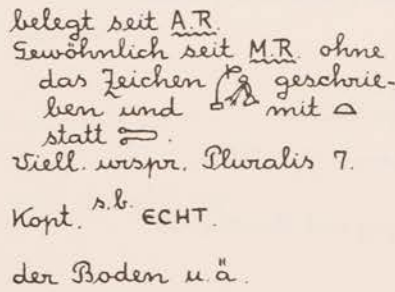 belegt seit A.R.
Gewöhnlich seit M.R. ohne
das Zeichen geschrie-
ben und mit 𓏏
statt 𓍿.
Viell. urspr. Pluralis 7.
Kopt. s.b. ⲈⲤⲎⲦ.
der Boden u. ä.